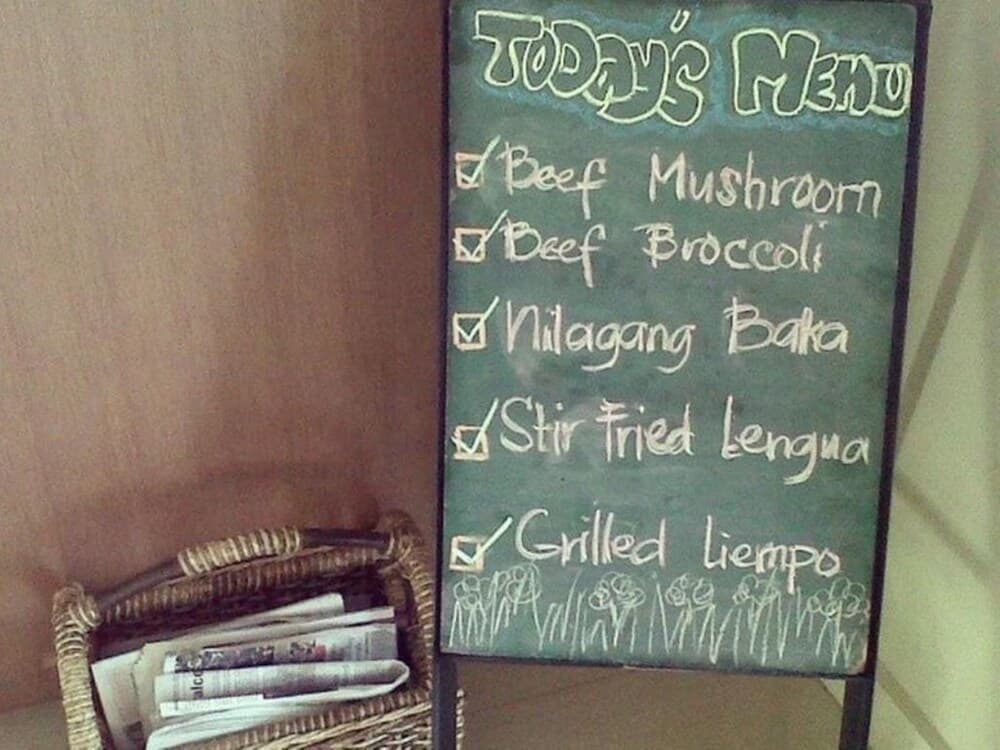 Today's Menu
Beef Mushroom
Beef Broccoli
Nilagang Baka
Stir Fried Lengua
Grilled Liempo